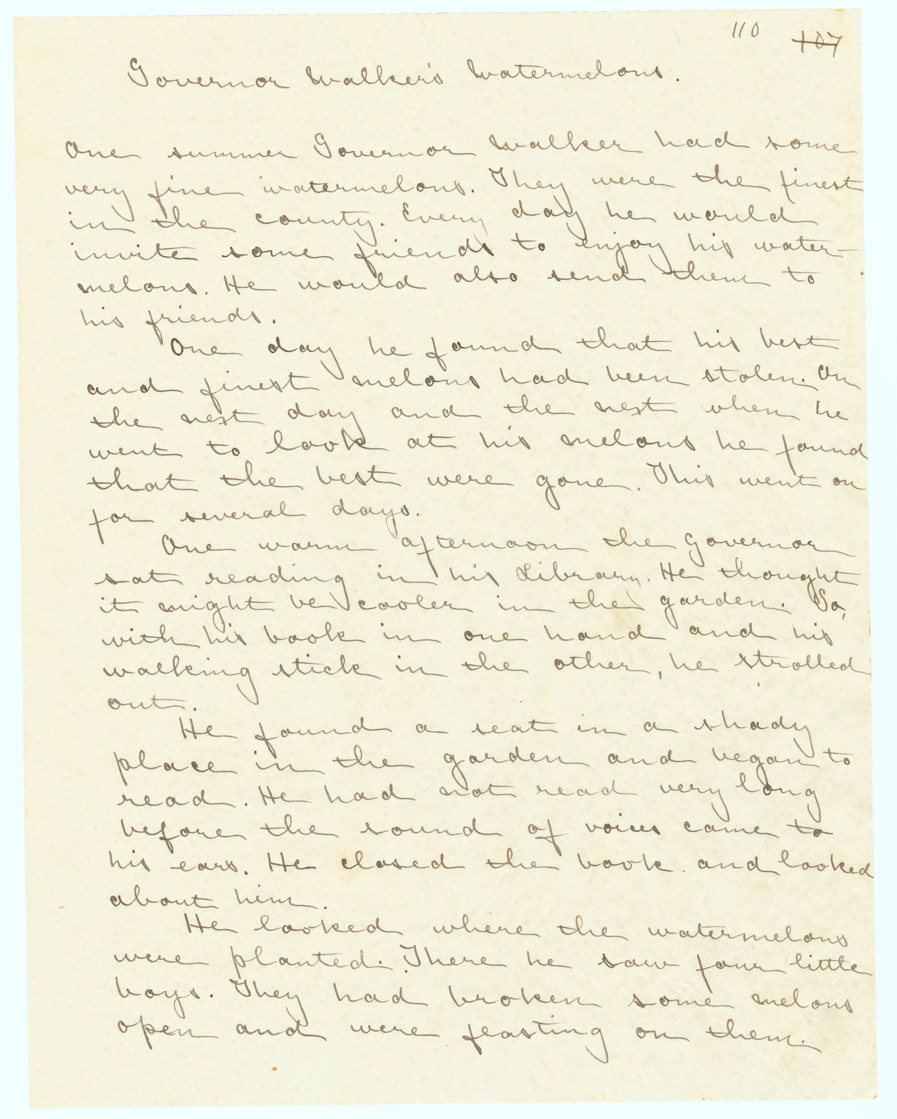 110 107
Governor Walker's Watermelons.
One summer Governor Walker had some
very fine watermelons. They were the finest
in the county. Every day he would
invite some friends to enjoy his water-
melons. He would also send them to
his friends.
One day he found that his best
and finest melons had been stolen. On
the next day and the next when he
went to look at his melons he found
that the best were gone. This went on
for several days.
One warm afternoon the Governor
sat reading in his Library. He thought
it might be cooler in the garden. So,
with his book in one hand and his
walking stick in the other, he strolled
out.
He found a seat in a shady
place in the garden and began to
read. He had not read very long
before the sound of voices came to
his ears. He closed the book and looked
about him.
He looked where the watermelons
were planted. There he saw four little
boys. They had broken some melons
open and were feasting on them.